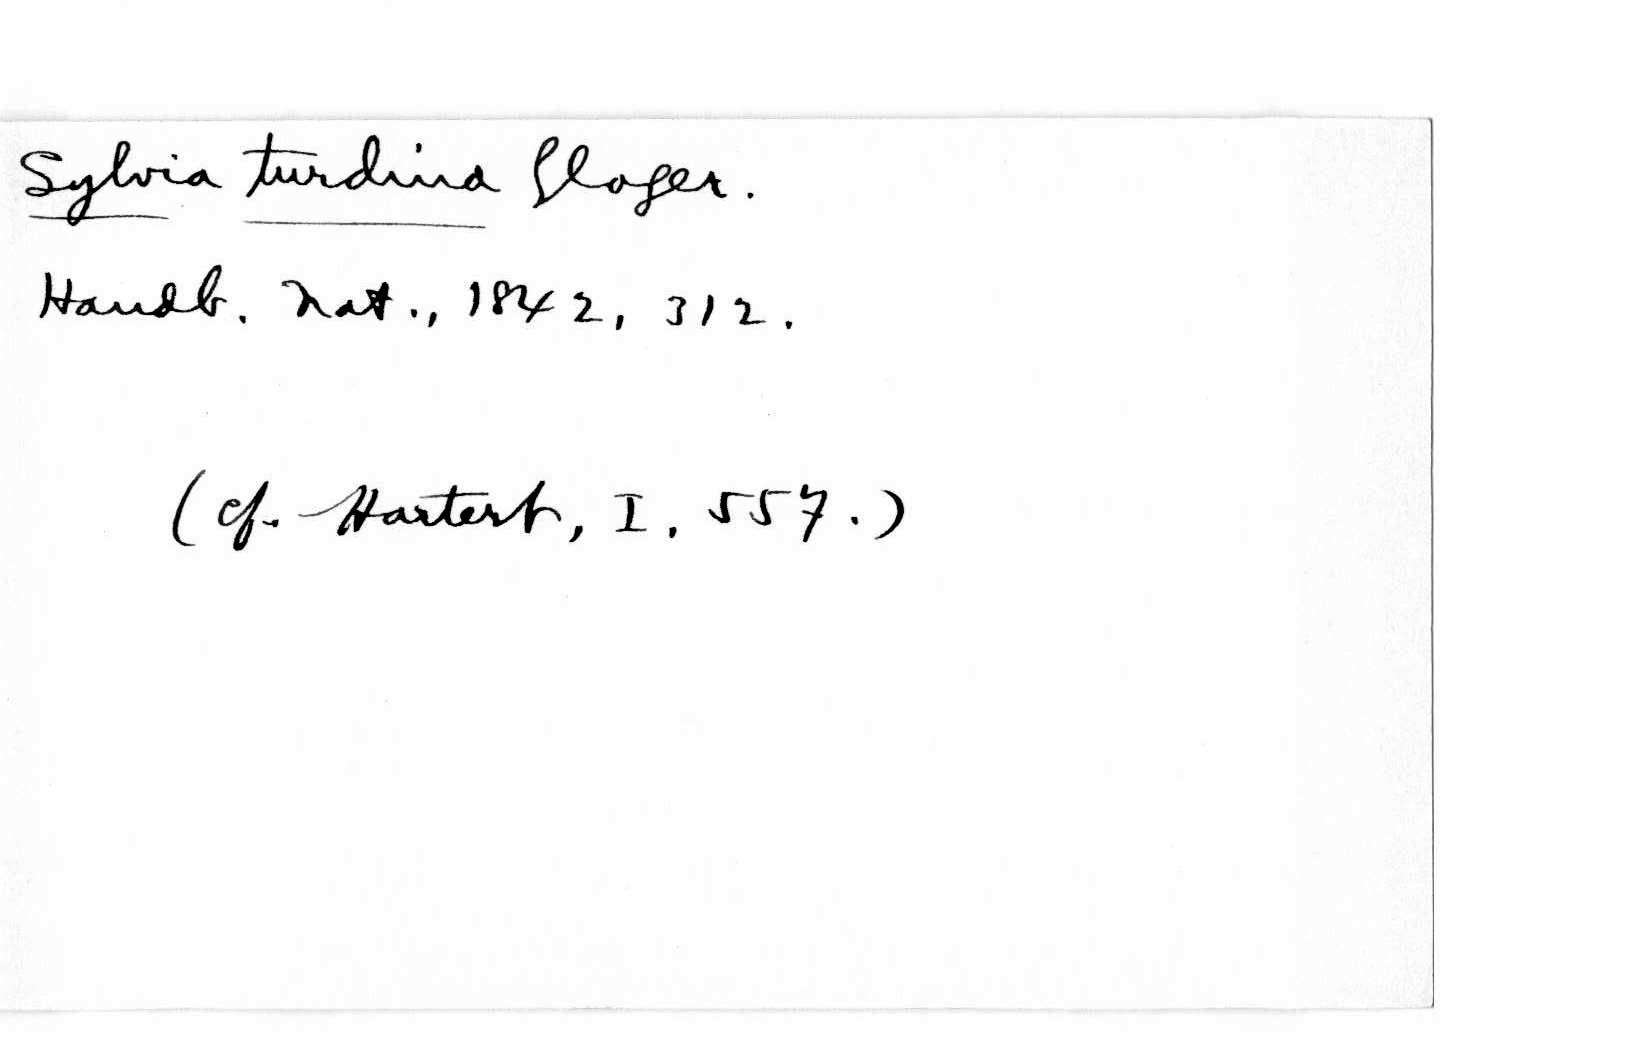 Sylvia turdina Gloger.
Handb. Nat., 1842, 312.
(cf. Hartert, I, 557.)